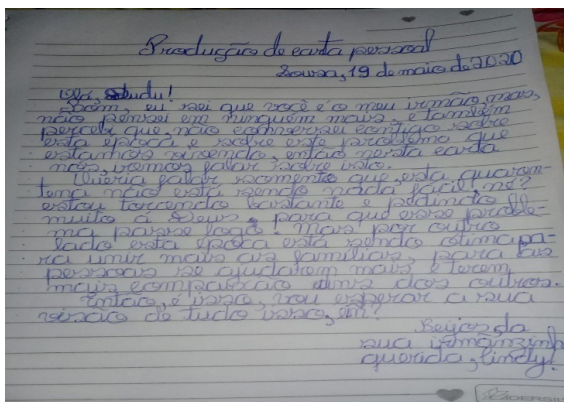 Produção de carta pessoal
Sousa, 19 de maio de 2020
Olá, Dudu!
Bom, eu sei que você é o meu irmão, mas,
não pensei em ninguém mais, e também
percebi que, não conversei contigo sobre
esta época e sobre este problema que
estamos vivendo, então nesta carta
nós, vamos falar sobre isso.
Queria falar somente que, esta quaren-
tena não está sendo nada fácil, né?
estou torcendo bastante e pedindo
muito á Deus, para que esse proble-
ma passe logo. Mas por outro
lado esta época está sendo ótima pa-
ra unir mais as famílias, para as
pessoas se ajudarem mais e terem
mais compaixão uns dos outros.
Então, é isso, vou esperar a sua
visão de tudo isso, em?
Beijos da
sua irmãnzinha
querida,